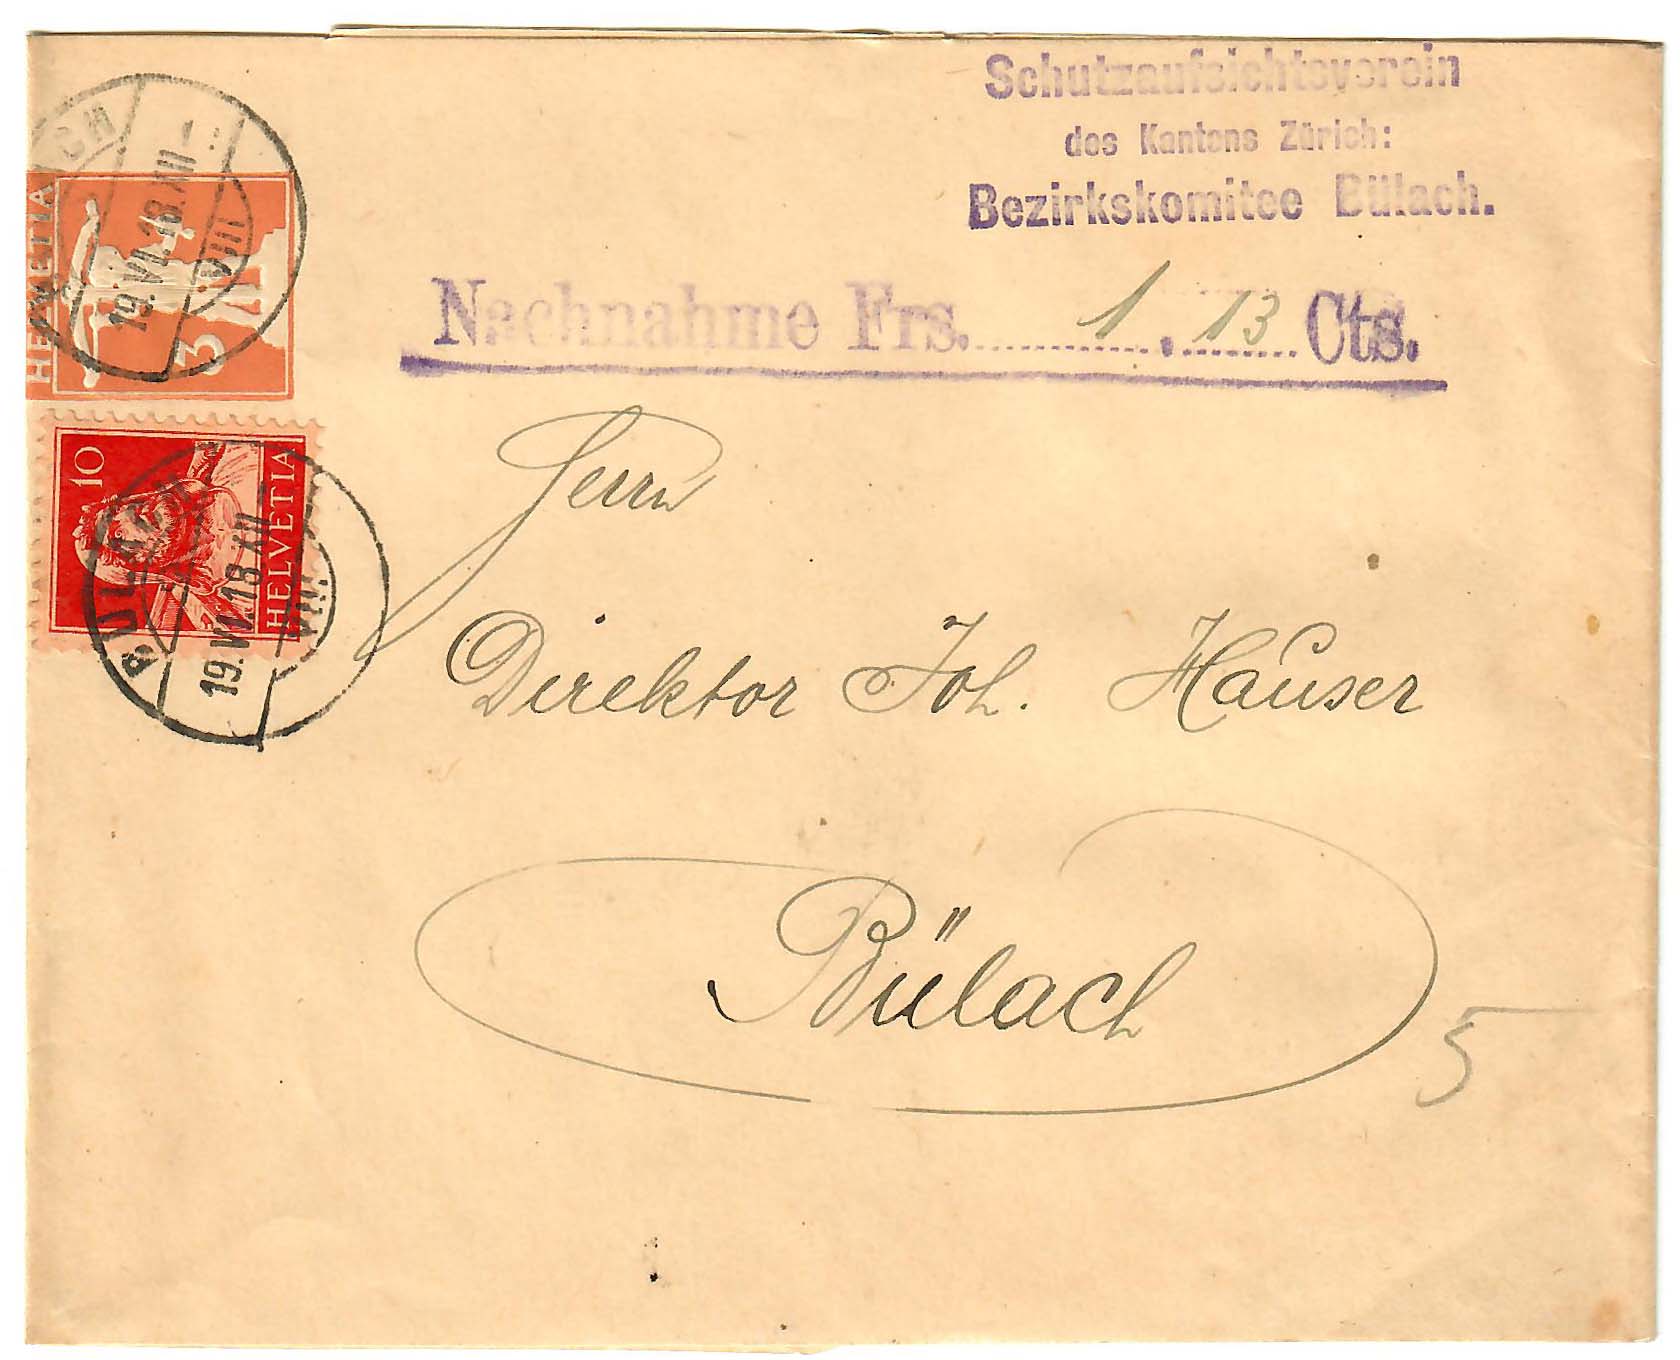 Schutzaufsichtsverein
des Kantons Zürich:
Bezirkskomitee Bülach.
Nachnahme Frs. 1.13 Cts.
HELVETIA
3
19.VI.18.XII-
VIII
10
HELVETIA
BÜLACH
19.VI.18.XII-
VIII.
Herrn
Direktor Joh. Hauser
Bülach
5